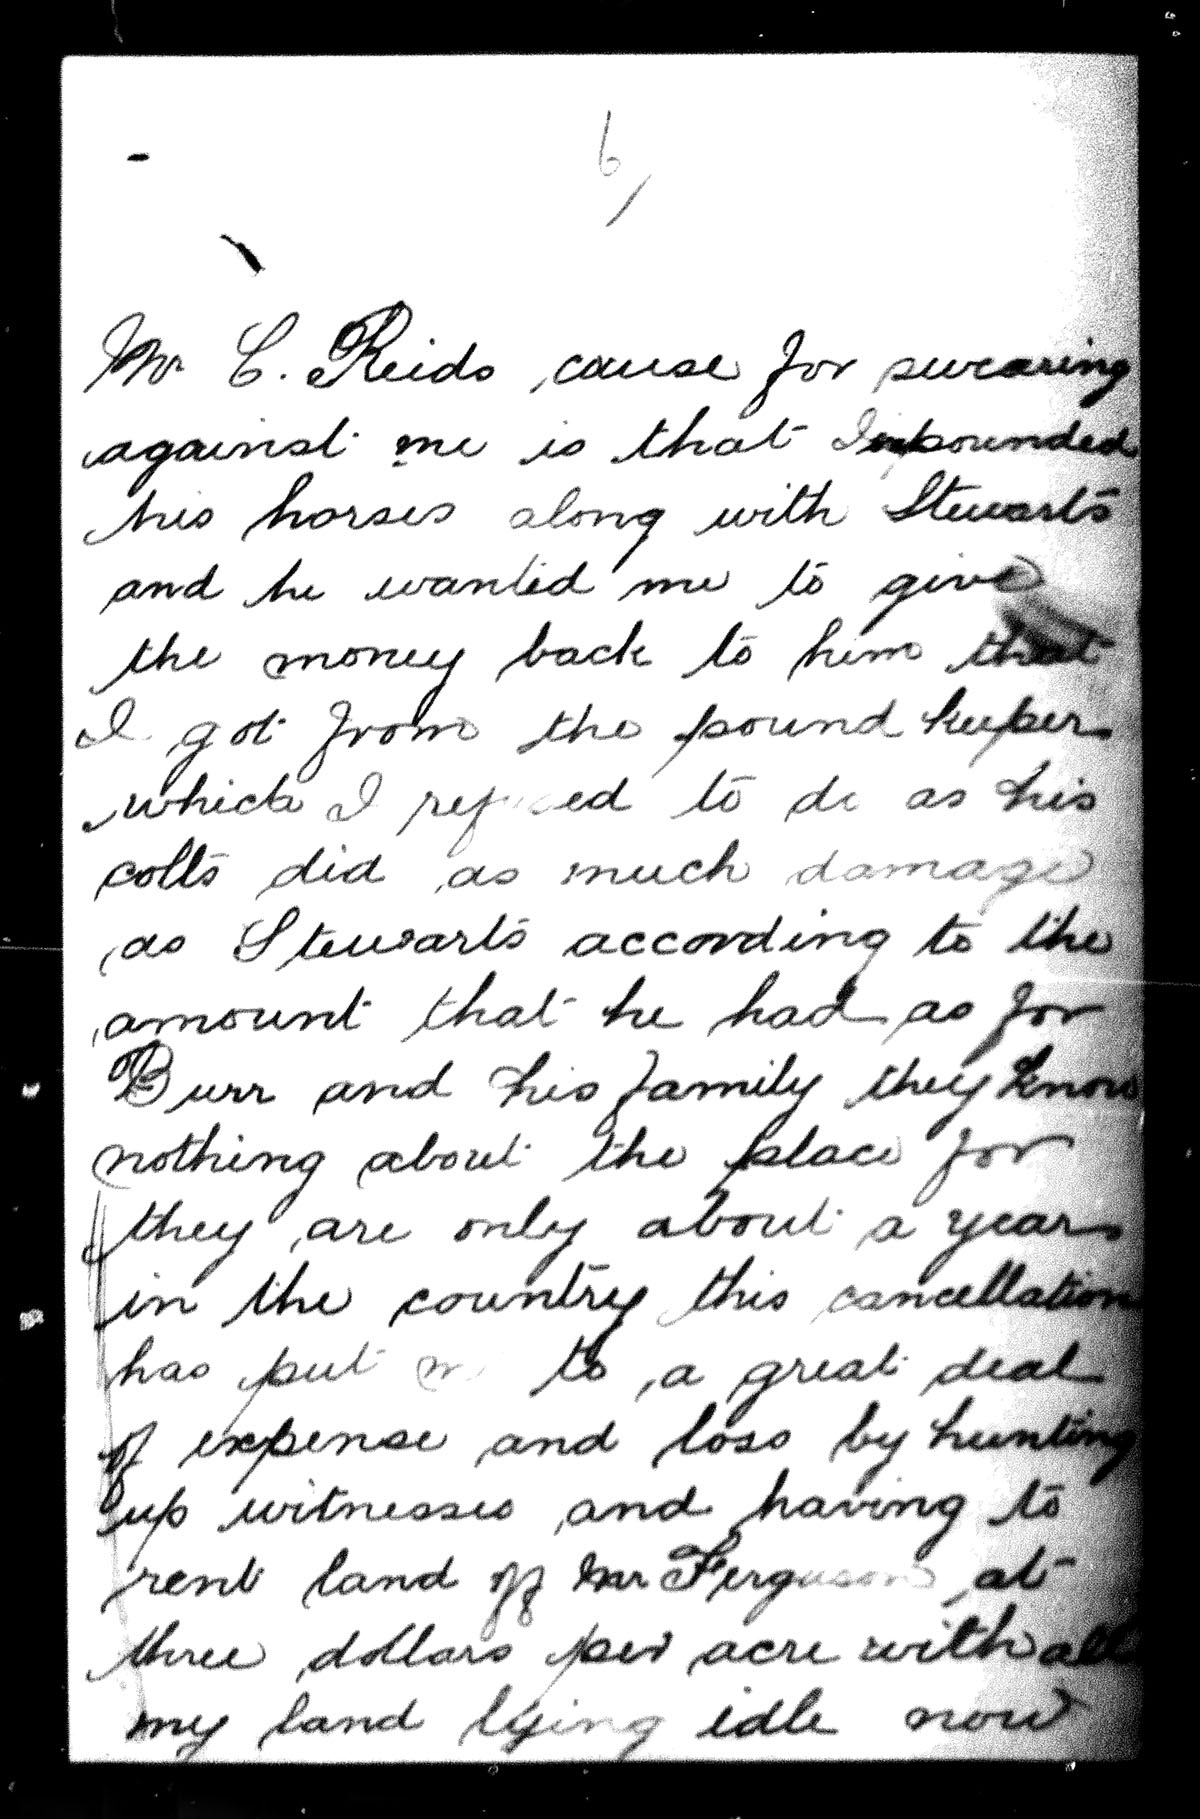 6/
Mr C. Reids cause for swearing
against me is that I impounded
his horses along with Stewarts
and he wanted me to give
the money back to him that
I got from the pound keeper
which I refused to do as his
colts did as much damage
as Stewarts according to the
amount that he had as for
Burr and his family they know
nothing about the place for
they are only about a year
in the country this cancellation
has put me to a great deal
of expense and loss by hunting
up witnesses and having to
rent land off Mr Ferguson at
three dollars per acre with all
my land lying idle now